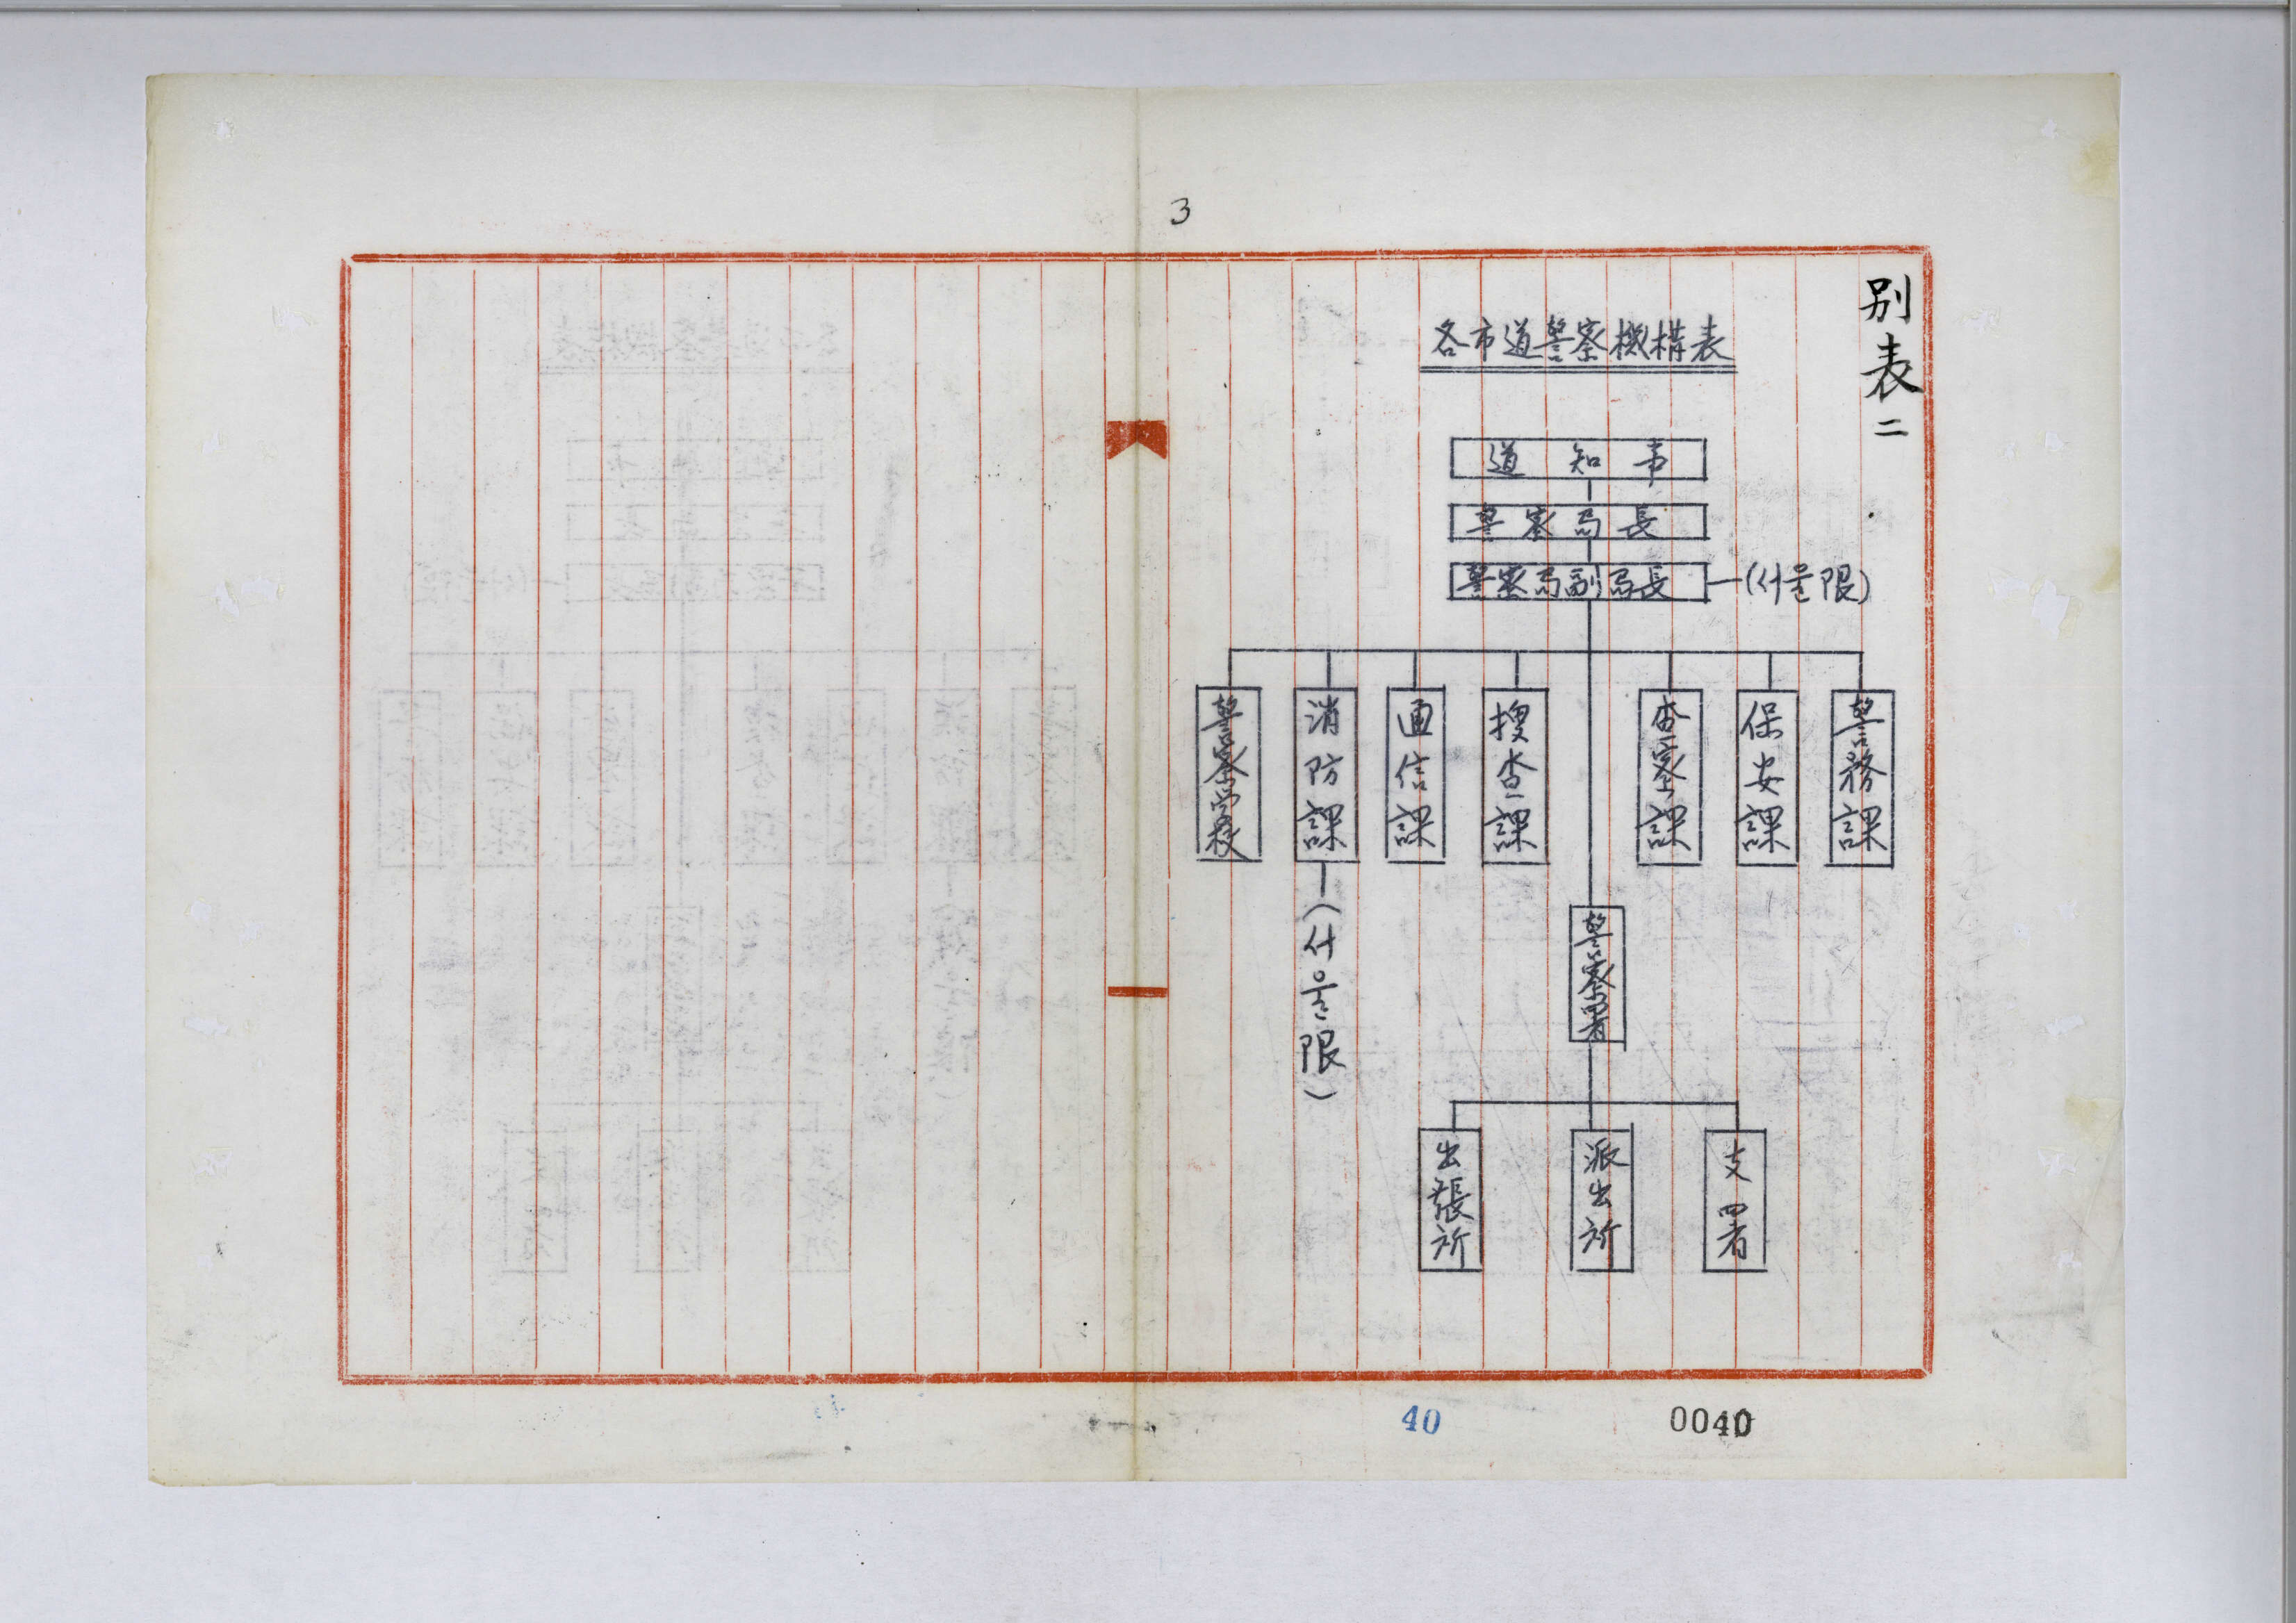 3
别表二
各市道警察機構表
道知事
警察局長
警察局副局長 (서울限)
警務課
保安課
査察課
搜査課
通信課
消防課 (서울限)
警察学校
警察署
支署
派出所
出張所
40
0040